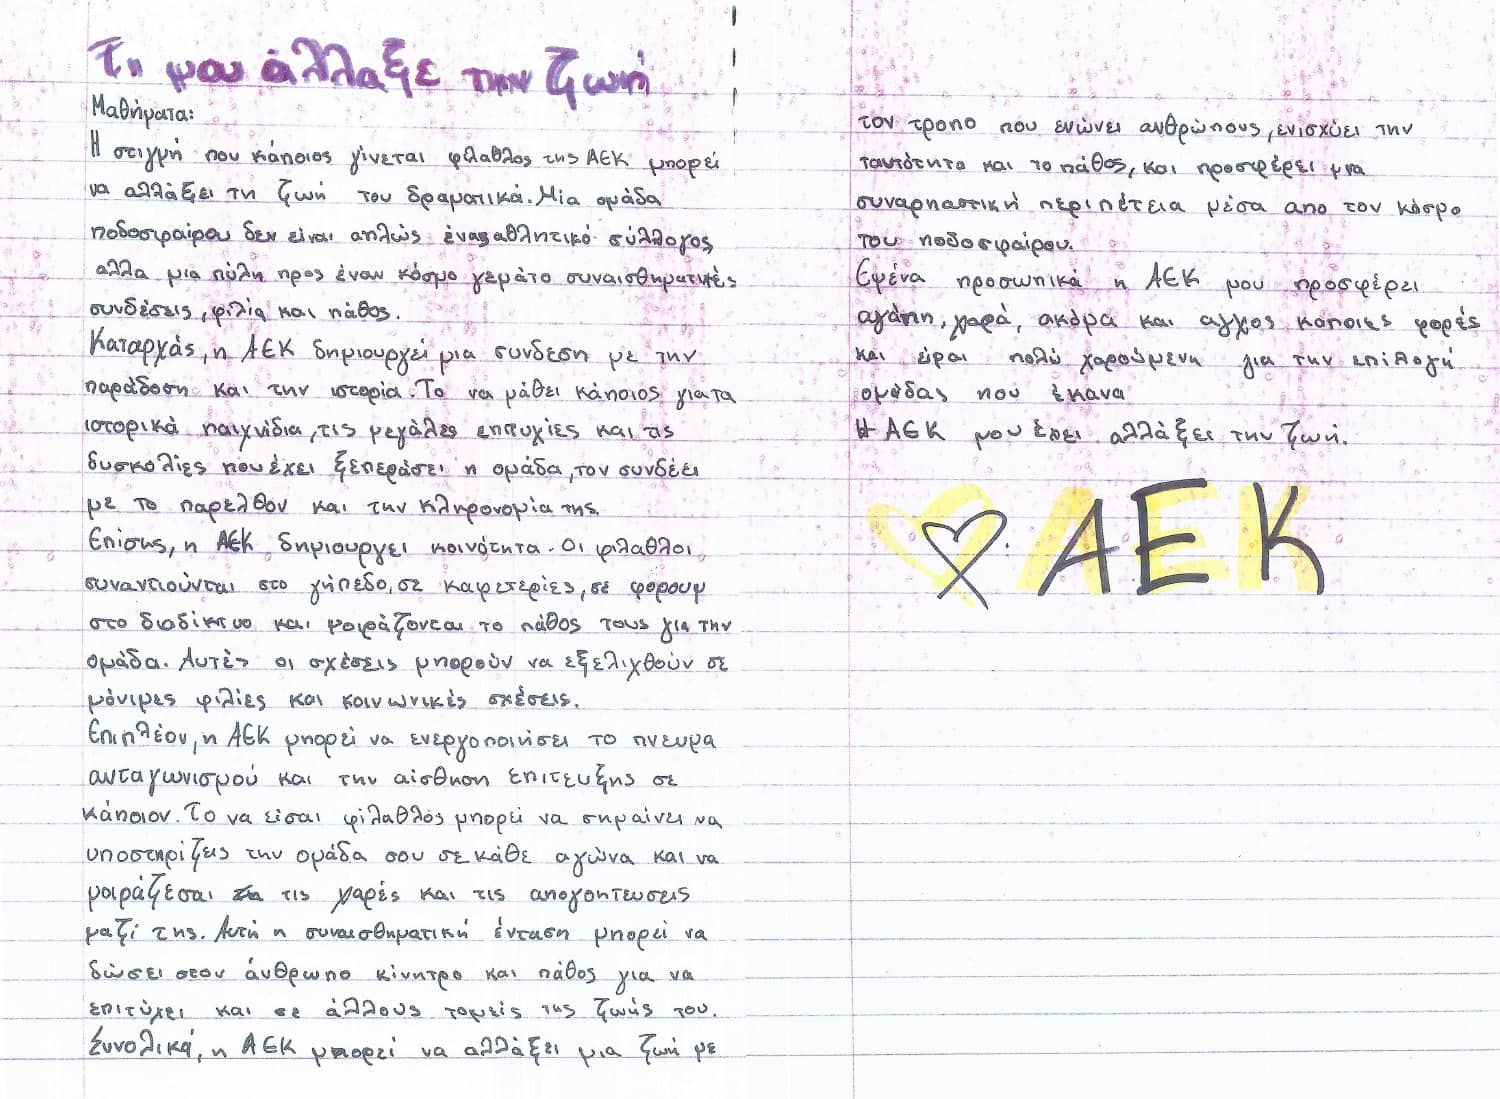 Τι μου άλλαξε την ζωή
Μαθήματα:
Η στιγμή που κάποιος γίνεται φίλαθλος της ΑΕΚ μπορεί
να αλλάξει τη ζωή του δραματικά. Μία ομάδα
ποδοσφαίρου δεν είναι απλώς ένας αθλητικό σύλλογος
αλλα μια πύλη προς έναν κόσμο γεμάτο συναισθηματικές
συνδέσεις, φιλία και πάθος.
Καταρχάς, η ΑΕΚ δημιουργεί μια συνδεση με την
παράδοση και την ιστορία. Το να μάθει κάποιος για τα
ιστορικά παιχνίδια, τις μεγάλες επιτυχίες και τις
δυσκολίες που έχει ξεπεράσει η ομάδα, τον συνδέει
με το παρελθον και την κληρονομία της.
Επίσης, η ΑΕΚ δημιουργει κοινότητα. Οι φιλαθλοι
συναντιούνται στο γήπεδο, σε καφετερίες, σε φορουμ
στο διαδίκτυο και μοιράζονται το πάθος τους για την
ομάδα. Αυτές οι σχέσεις μπορούν να εξελιχθούν σε
μόνιμες φιλίες και κοινωνικές σχέσεις.
Επιπλέον, η ΑΕΚ μπορεί να ενεργοποιήσει το πνευμα
ανταγωνισμού και την αίσθηση επιτευξης σε
κάποιον. Το να είσαι φίλαθλός μπορεί να σημαίνει να
υποστηρίζεις την ομάδα σου σε κάθε αγώνα και να
μοιράζεσαι τις χαρές και τις απογοητευσεις
μαζί της. Αυτή η συναισθηματική ένταση μπορεί να
δώσει στον άνθρωπο κίνητρο και πάθος για να
επιτύχει και σε άλλους τομείς της ζωής του.
Συνολικά, η ΑΕΚ μπορεί να αλλάξει μια ζωή με
τον τροπο που ενώνει ανθρώπους, ενισχύει την
ταυτότητα και το πάθος, και προσφέρει μια
συναρπαστική περιπέτεια μέσα απο τον κόσμο
του ποδοσφαίρου.
Εμένα προσωπικά η ΑΕΚ μου προσφέρει
αγάπη, χαρά, ακόμα και αγχος κάποιες φορές
και είμαι πολύ χαρούμενη για την επιλογή
ομάδας που έκανα
Η ΑΕΚ μου έχει αλλάξει την ζωή.
ΑΕΚ